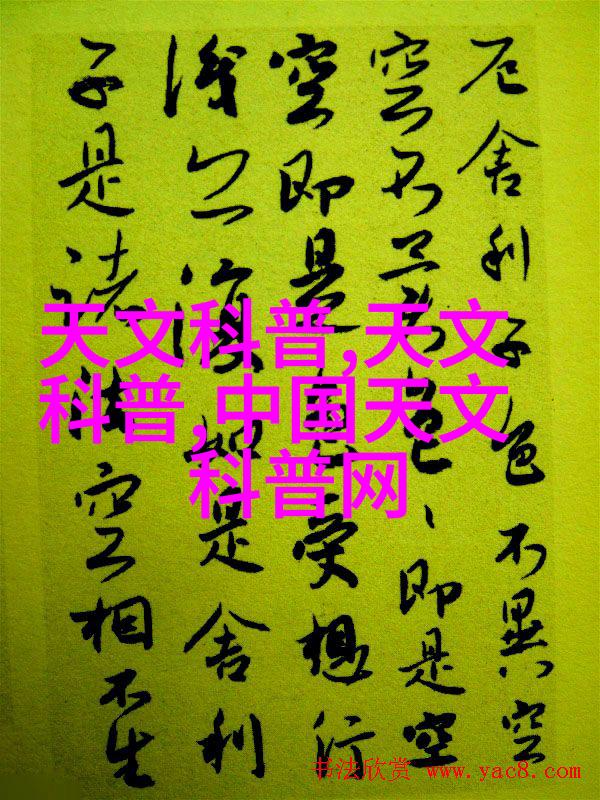 厄舍利子色不異空
空不異色、即是空
空即是色受想行
識亦復如是舍利
子是諸法空相不生
天文科普,天文
科普,中国天文
科普网
书法欣赏 www.yac8.com